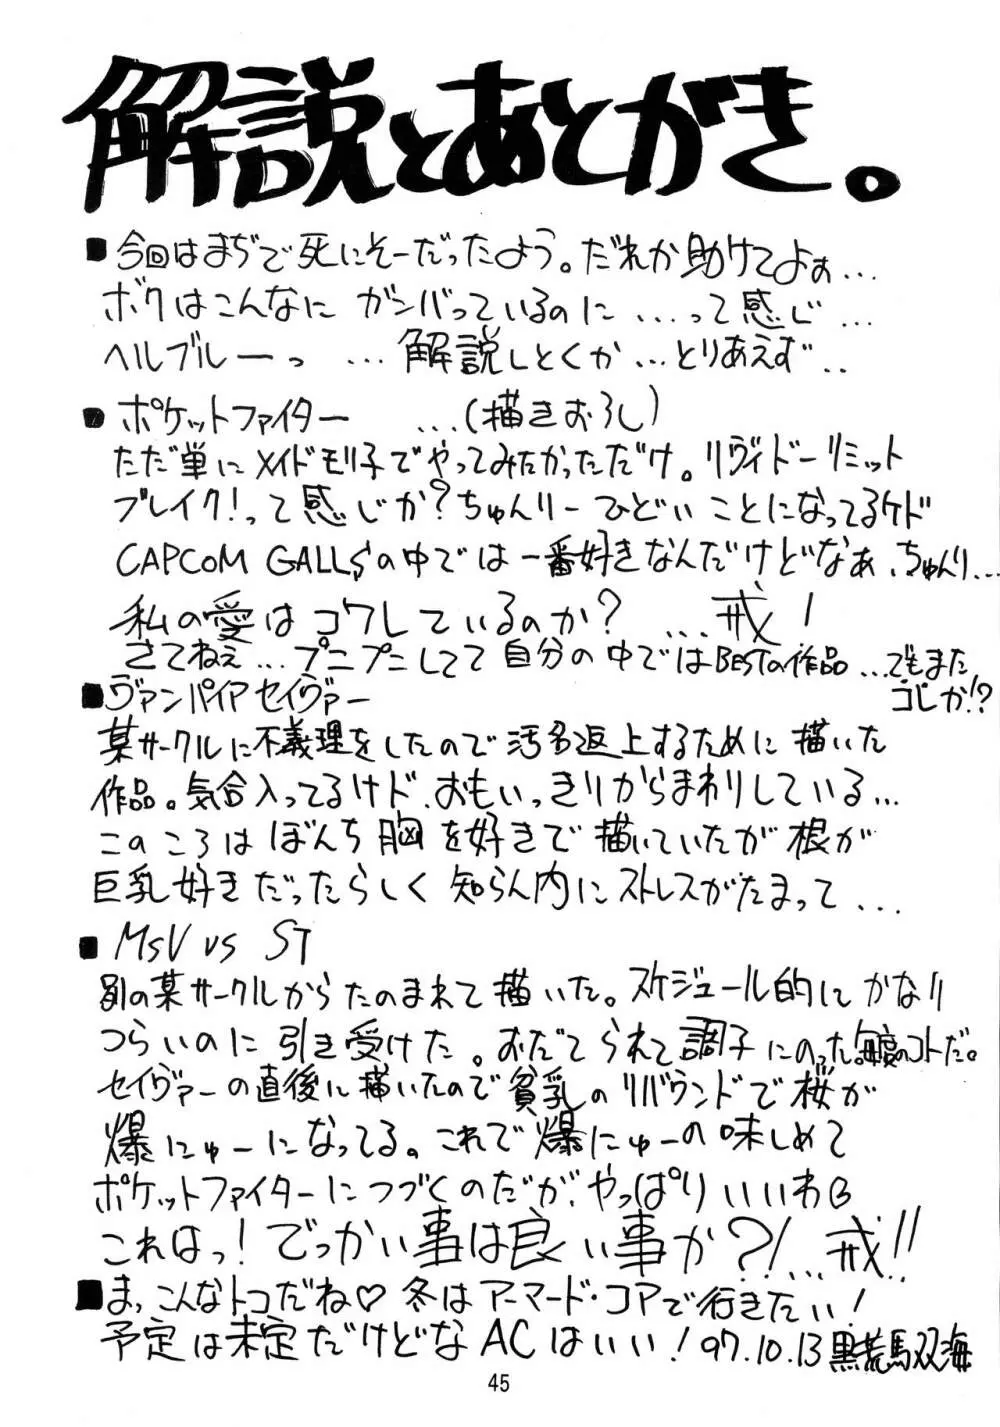 解説とあとがき。
■今回はまぢで死にそーだったよう。だれか助けてよぉ…
ボクはこんなに ガンバっているのに …って感じ…
ヘルブルーっ …解説しとくか…とりあえず..
■ポケットファイター …(描きおろし)
ただ単にメイドモリ子でやってみたかっただけ。リヴィドーリミット
ブレイク!って感じか?ちゅんりー ひどいことになってるケド
CAPCOM GALLSの中では一番好きなんだけどなぁ、ちゅんり…
私の愛はコワレているのか? …戒!
さてねぇ…プニプニしてて自分の中ではBESTの作品…でもまた
コレか!?
■ヴァンパイアセイヴァー
某サークルに不義理をしたので汚名返上するために描いた
作品。気合入ってるけド、おもいっきりからまわりしている…
このころは ぼんち胸を好きで描いていたが根が
巨乳好きだったらしく知らん内にストレスがたまって…
■MSV vs ST
別の某サークルからたのまれて描いた。スケジュール的にかなり
つらいのに引き受けた。おだてられて調子にのった。毎度のコトだ。
セイヴァーの直後に描いたので貧乳のリバウンドで桜が
爆にゅーになってる。これで爆にゅーの味しめて
ポケットファイターにつづくのだが、やっぱりいいわ
これはっ!でっかい事は良い事か?!…戒!!
■まっこんなトコだね♡冬はアーマード・コアで行きたい!
予定は未定だけどなACはいい!97.10.13黒荒馬双海
45